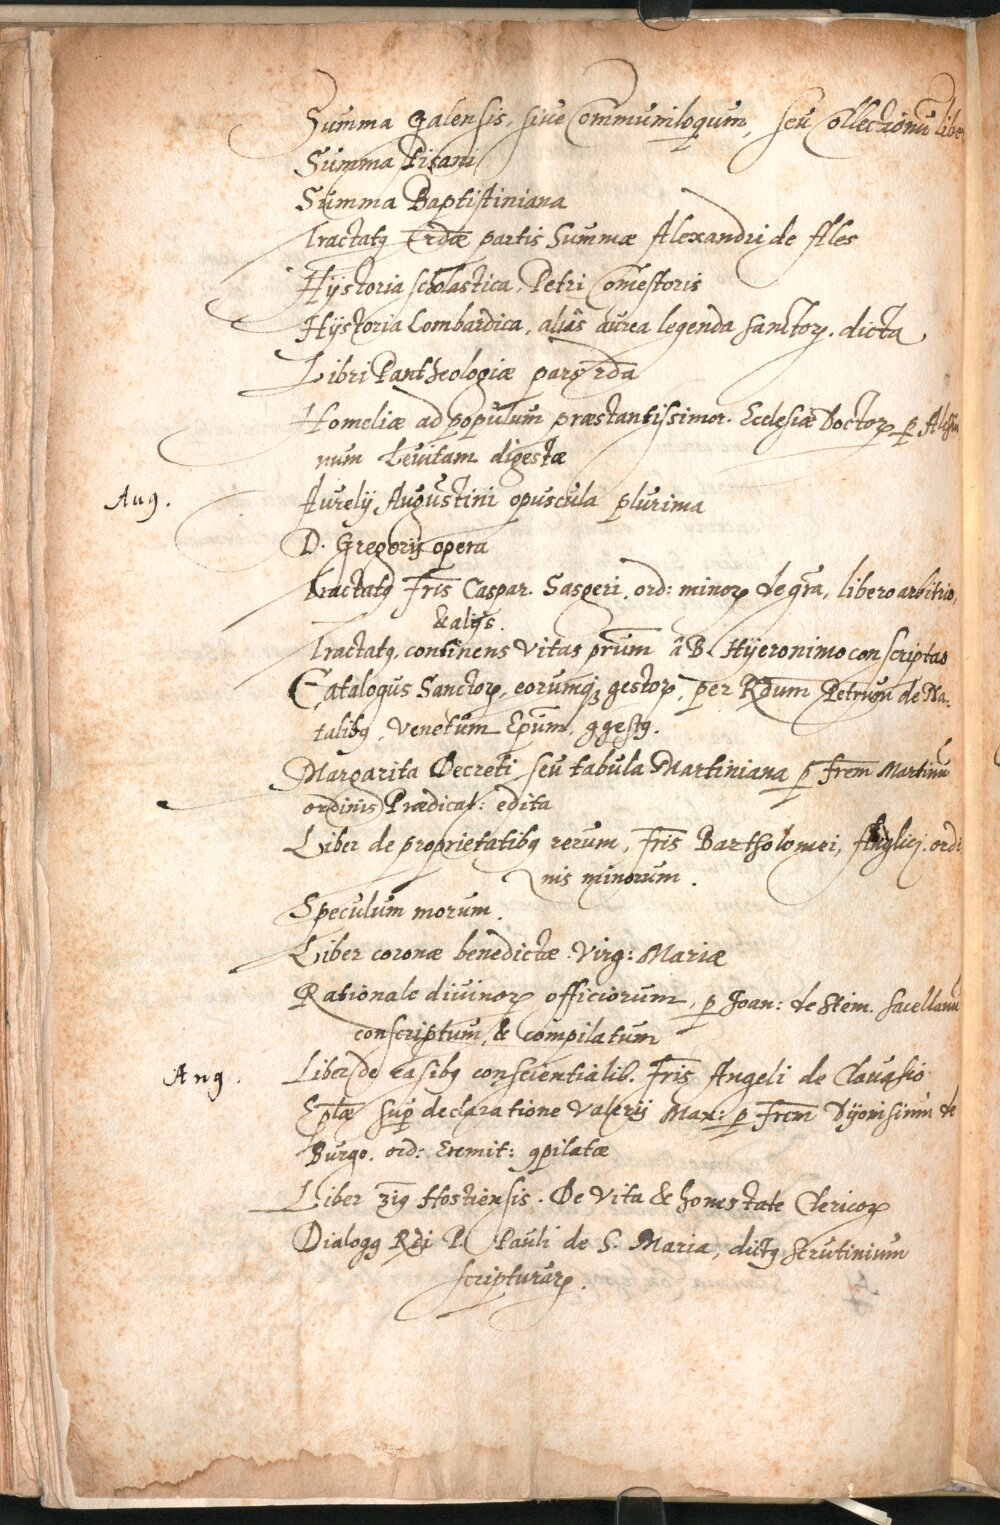 Summa Galensis, sive Communiloquum, seu Collectionũ libe
Summa Pisani
Summa Baptistiniana
Tractatꝰ partis Summæ Alexandri de Ales
Hÿstoria scholastica, Petri Comestoris
Hÿstoria Lombardica, aliâs aurea legenda Sanctoꝝ. dicta
Libri Pantheologiæ pars
Homeliæ ad populum præstantissimor. Ecclesiæ Doctoꝝ ꝑ
num Levitam digestæ
Aug. Aurelij Augustini opuscula plurima
D. Gregorij opera
Tractatꝰ Fr̃is Caspar. Sasgeri, ord: minoꝝ de gr̃a, libero arbitrio,
& alijs.
Tractatꝰ, continens Vitas pr̃um â B. Hÿeronimo conscriptas
Catalogus Sanctoꝝ, eorumqꝫ gestoꝝ, per Rdum Petrum de Na-
talibꝰ, Venetum Epũm, ꝯgestꝰ.
Margarita Decreti, seu tabula Martiniana ꝑ frem Martinũ
ordinis Prædicat: edita
Liber de proprietatibꝰ rerum, fr̃is Bartholomei, Anglici. ordi
nis minorum.
Speculum morum.
Liber coronæ benedictæ. Virg: Mariæ
Rationale divinoꝝ officiorum, ꝑ Joan: de Stem. sacellanũ
conscriptum, & compilatum
Aug. Liber de casibꝰ conscientialib. Fr̃is Angeli de Clavasio.
Ep̃læ sup̱ declaratione Valerij Max: ꝑ frem Dÿonisium de
Burgo. ord: Eremit: ꝯpilatæ
Liber 3iꝰ Hostiensis. De Vita & honestate Clericoꝝ
Dialogꝰ Rdi P. Pauli de S. Maria, dictꝰ Scrutinium
scripturaꝝ.